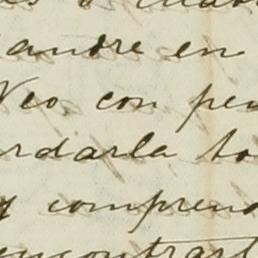 andre en
Veo, con pen
rdarla to
y comprend
encontrart